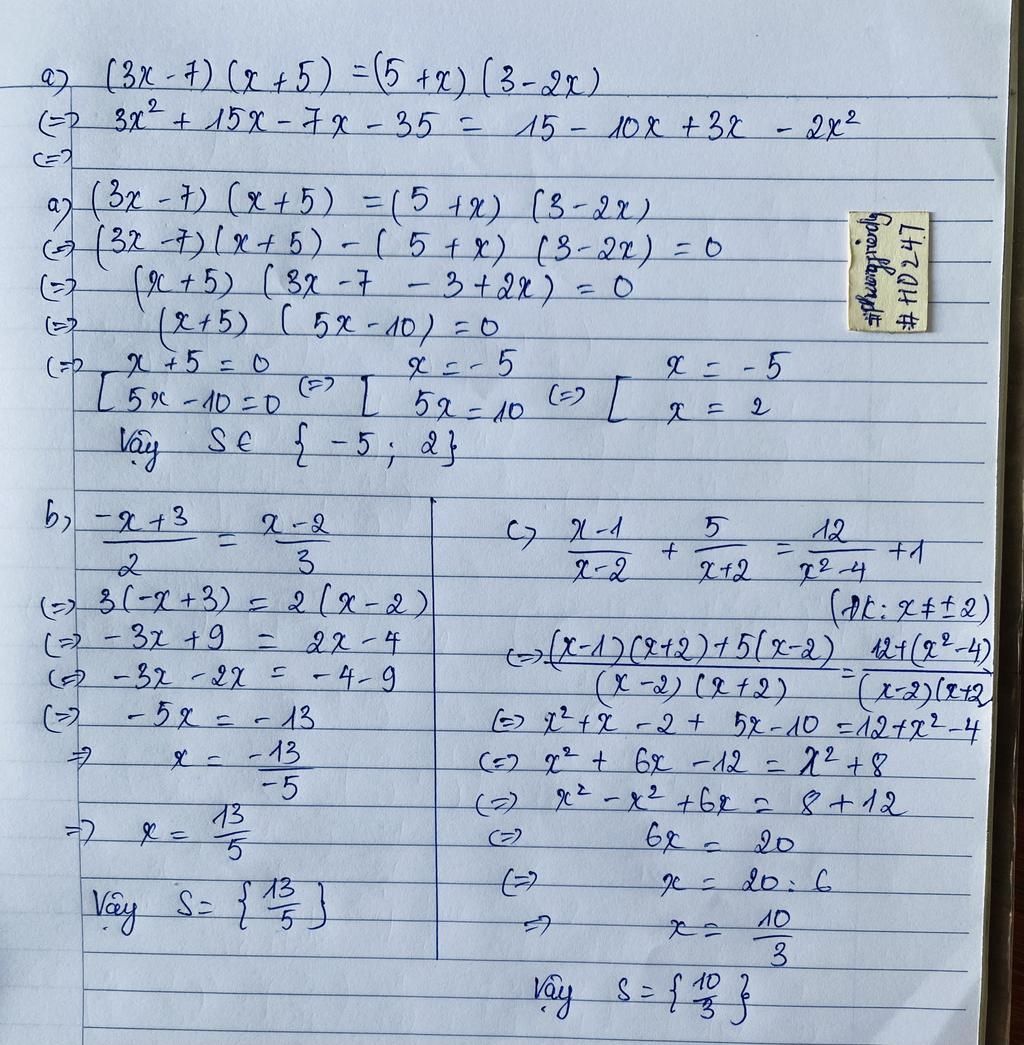 a) (3x - 7) (x + 5) = (5 + x) (3 - 2x)
(=) 3x² + 15x - 7x - 35 = 15 - 10x + 3x - 2x²
(=)
a) (3x - 7) (x + 5) = (5 + x) (3 - 2x)
(=) (3x - 7) (x + 5) - (5 + x) (3 - 2x) = 0
(=) (x + 5) (3x - 7 - 3 + 2x) = 0
(=) (x + 5) (5x - 10) = 0
(=) [ x + 5 = 0 (=) [ x = - 5 (=) [ x = - 5
5x - 10 = 0 5x = 10 x = 2
Vậy S ∈ { - 5 ; 2 }
# HD247
b) (-x + 3)/2 = (x - 2)/3
(=) 3(-x + 3) = 2(x - 2)
(=) -3x + 9 = 2x - 4
(=) -3x - 2x = -4 - 9
(=) -5x = -13
=> x = -13/-5
=> x = 13/5
Vậy S = { 13/5 }
c) (x - 1)/(x - 2) + 5/(x + 2) = 12/(x² - 4) + 1
(ĐK: x ≠ ±2)
(=) ((x - 1)(x + 2) + 5(x - 2))/((x - 2)(x + 2)) = (12 + (x² - 4))/((x - 2)(x + 2
(=) x² + x - 2 + 5x - 10 = 12 + x² - 4
(=) x² + 6x - 12 = x² + 8
(=) x² - x² + 6x = 8 + 12
(=) 6x = 20
(=) x = 20 : 6
=> x = 10/3
Vậy S = { 10/3 }